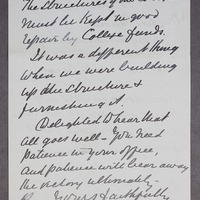 The Structures of the
must be kept in good
repair by College funds.
It was a different thing
when we were building
up the Structure &
furnishing it.
Delighted to hear that
all goes well - You need
patience in your office,
and patience will bear away
the victory ultimately -
Yours faithfully